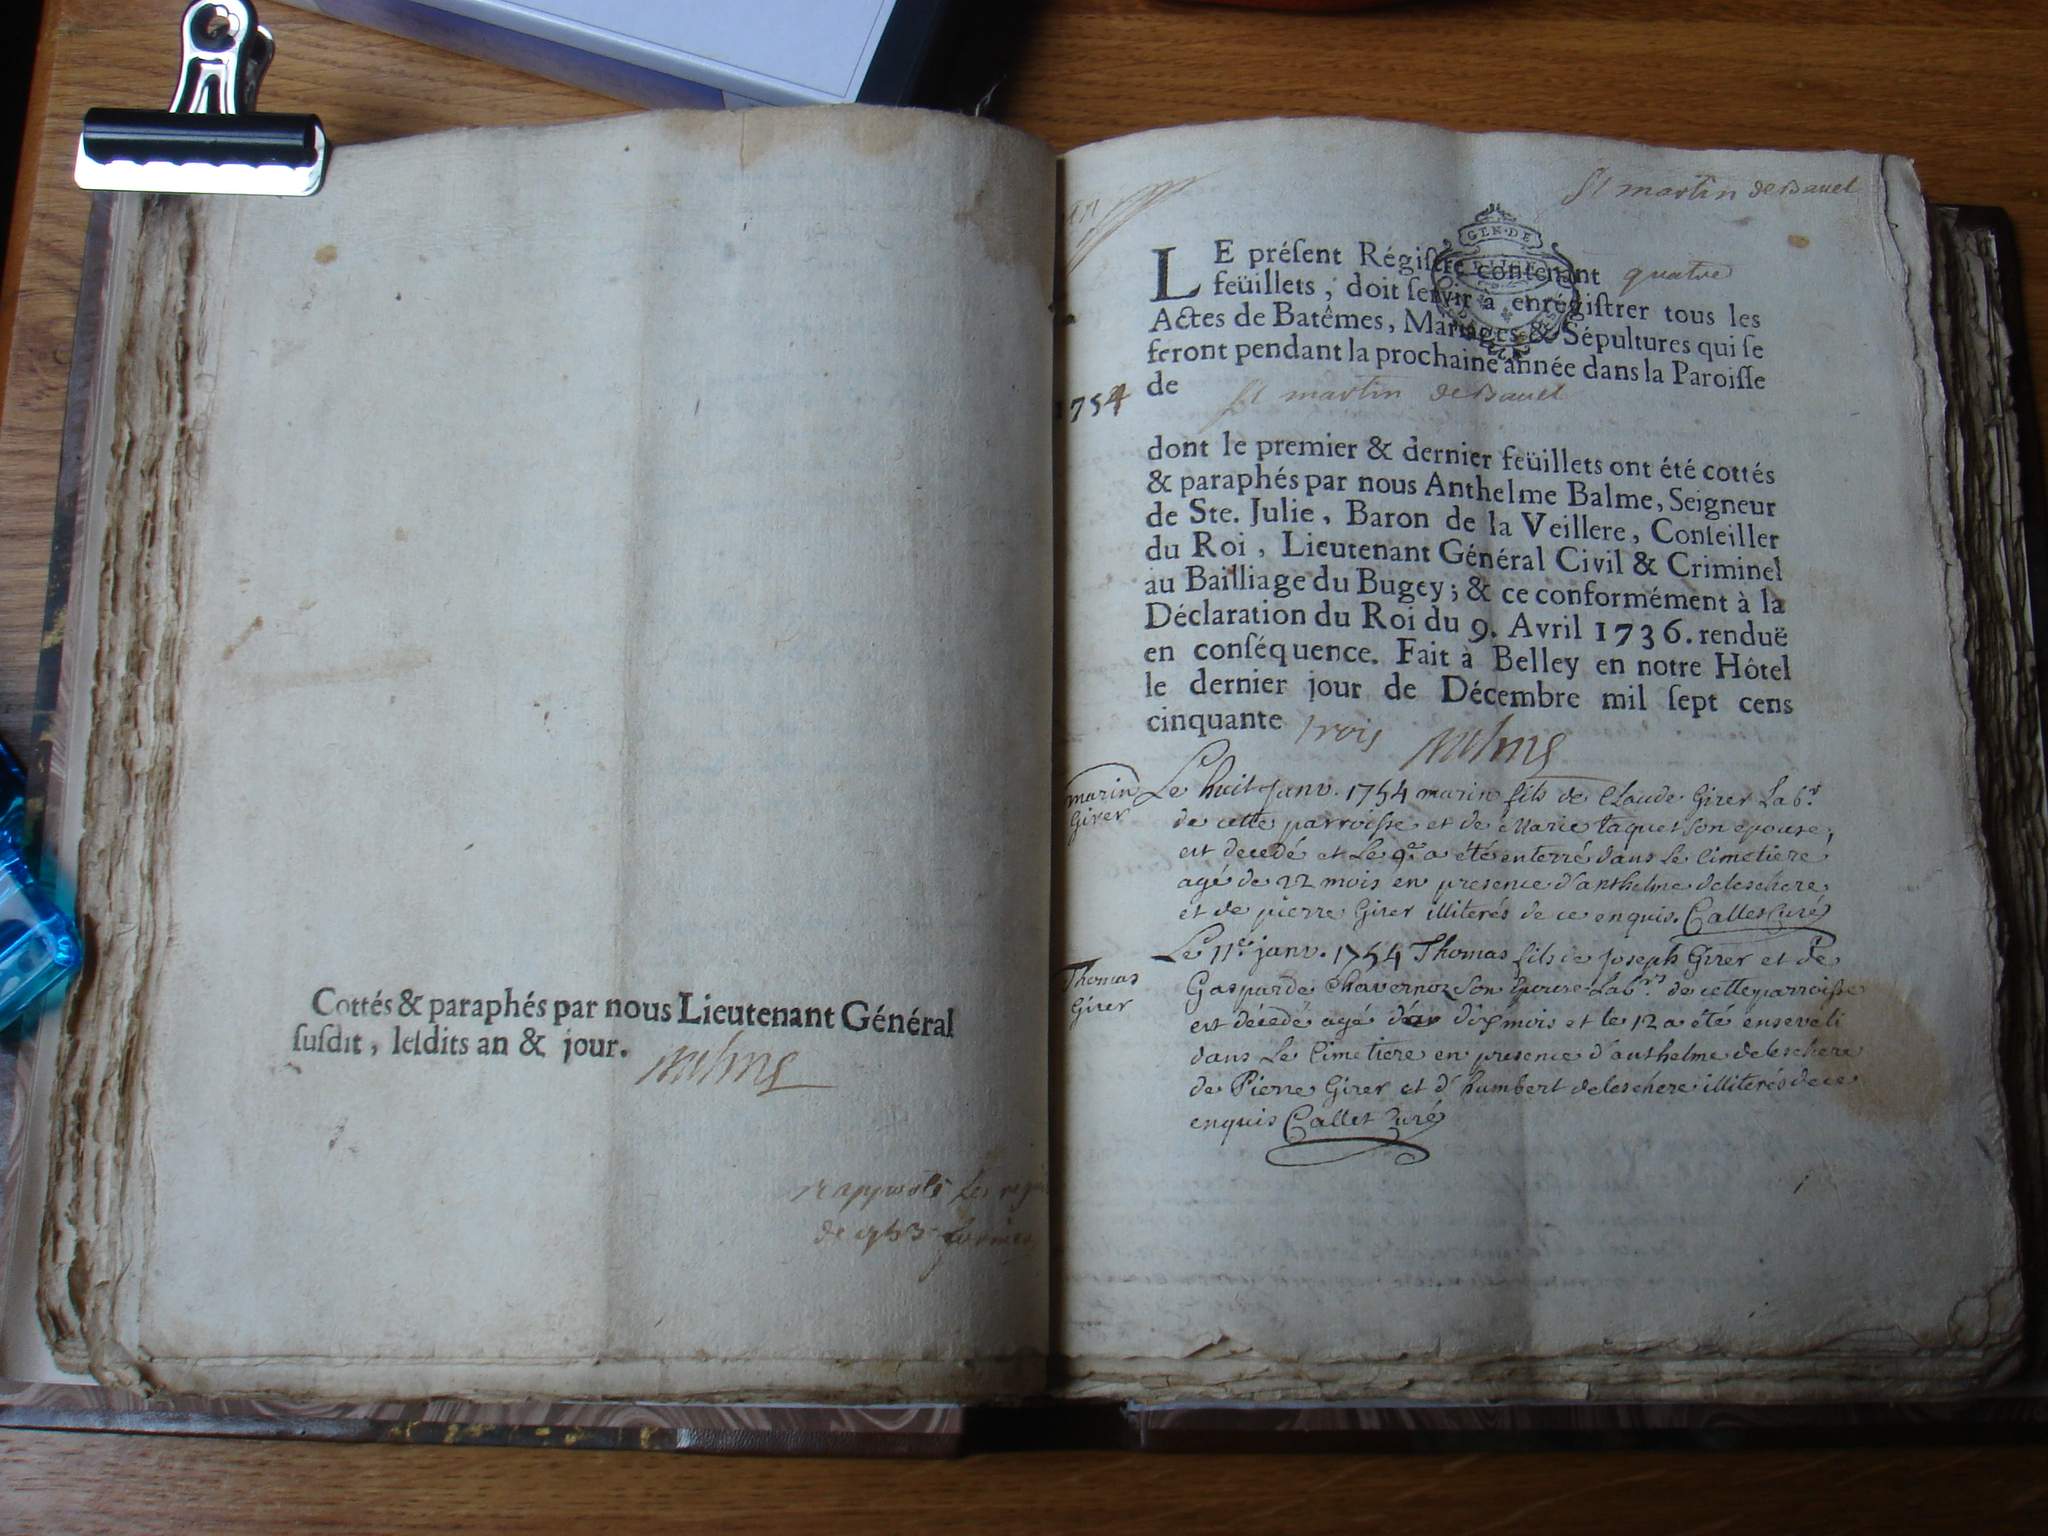 Cottés & paraphés par nous Lieutenant Général
ſuſdit, leſdits an & jour.
rapporté les
de 1753
St martin de Bavel
GEN·DE
LE préſent Régiſtre contenant quatre
feüillets, doit ſervir à enrégiſtrer tous les
Actes de Batêmes, Mariages & Sépultures qui ſe
feront pendant la prochaine année dans la Paroiſſe
de St martin de Bavel
1754
dont le premier & dernier feüillets ont été cottés
& paraphés par nous Anthelme Balme, Seigneur
de Ste. Julie, Baron de la Veillere, Conſeiller
du Roi, Lieutenant Général Civil & Criminel
au Bailliage du Bugey; & ce conformément à la
Déclaration du Roi du 9. Avril 1736. renduë
en conſéquence. Fait à Belley en notre Hôtel
le dernier jour de Décembre mil ſept cens
cinquante trois
marin
Girer
Le huit Janv. 1754 marin fils de Claude Girer Labr.
de cette parroisse et de Marie taquet son epouse,
est decedé et Le 9e a été enterré dans Le Cimetiere
agé de 22 mois en presence d'anthelme deleschere
et de pierre Girer illiterés de ce enquis. Callet Curé
Thomas
Girer
Le 11e janv. 1754 Thomas fils de Joseph Girer et de
Gasparde Chavernoz son Epouse Labrs. de cette parroisse
est décedé agé dix mois et le 12 a été enseveli
dans Le Cimetiere en presence d'anthelme deleschere
de Pierre Girer et d'humbert deleschere illiterés de ce
enquis Callet Curé